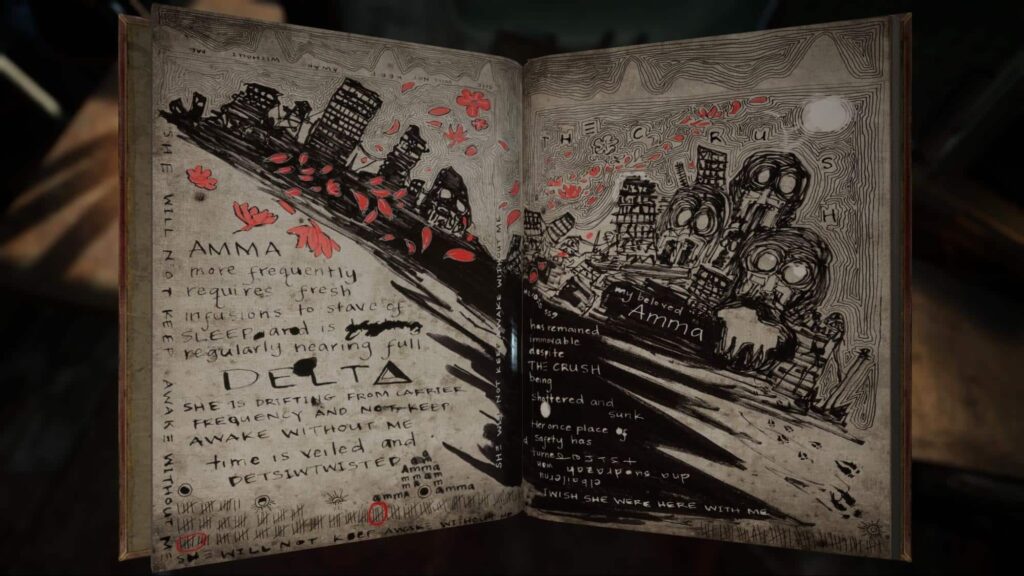 WITHOUT ME
SHE WILL NOT KEEP AWAKE WITHOUT ME
AMMA
more frequently
requires fresh
infusions to stave of
SLEEP and is
regularly nearing full
DELTA
SHE IS DRIFTING FROM CARRIER
FREQUENCY AND NOT KEEP
AWAKE WITHOUT ME
time is veiled and
DETSIWTWISTED
Amma
amma amma
SHE WILL NOT KEEP AWAKE WITHOUT
SHE WILL NOT KEEP AWAKE WITHOUT ME
THE CRUSH
my beloved
Amma
has remained
immovable
despite
THE CRUSH
being
shattered and
sunk
Her once place of
safety has
turned
and
I WISH SHE WERE HERE WITH ME